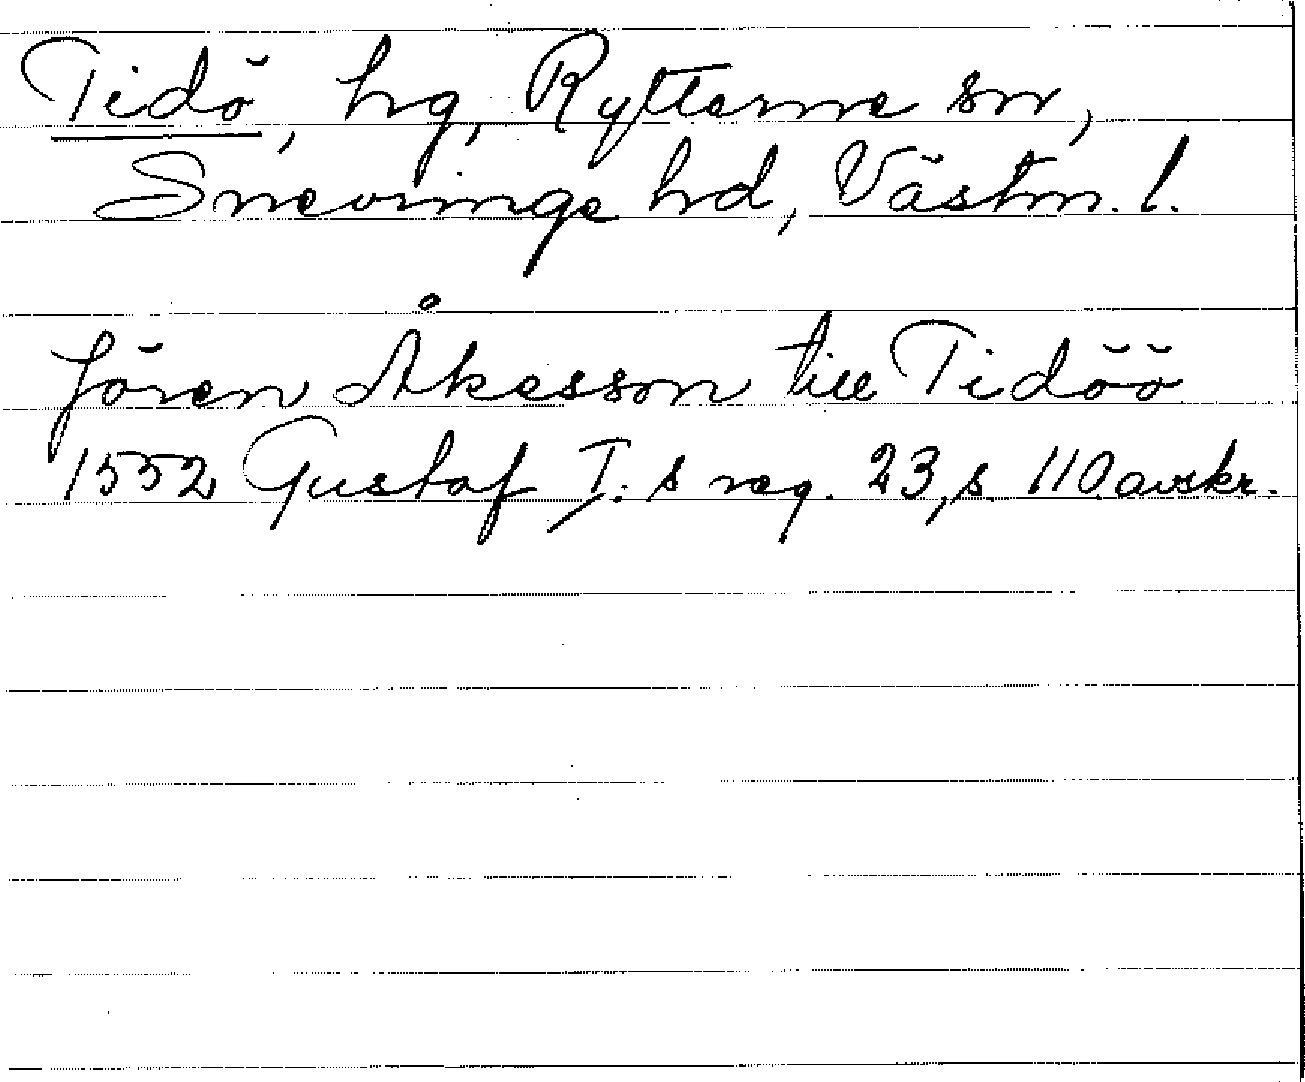 Tidö, hg, Rytterne sn,
Snevringe hd, Västm. l.
Jören Åkesson till Tidöö
1552 Gustaf I: s reg. 23, s. 110 avskr.